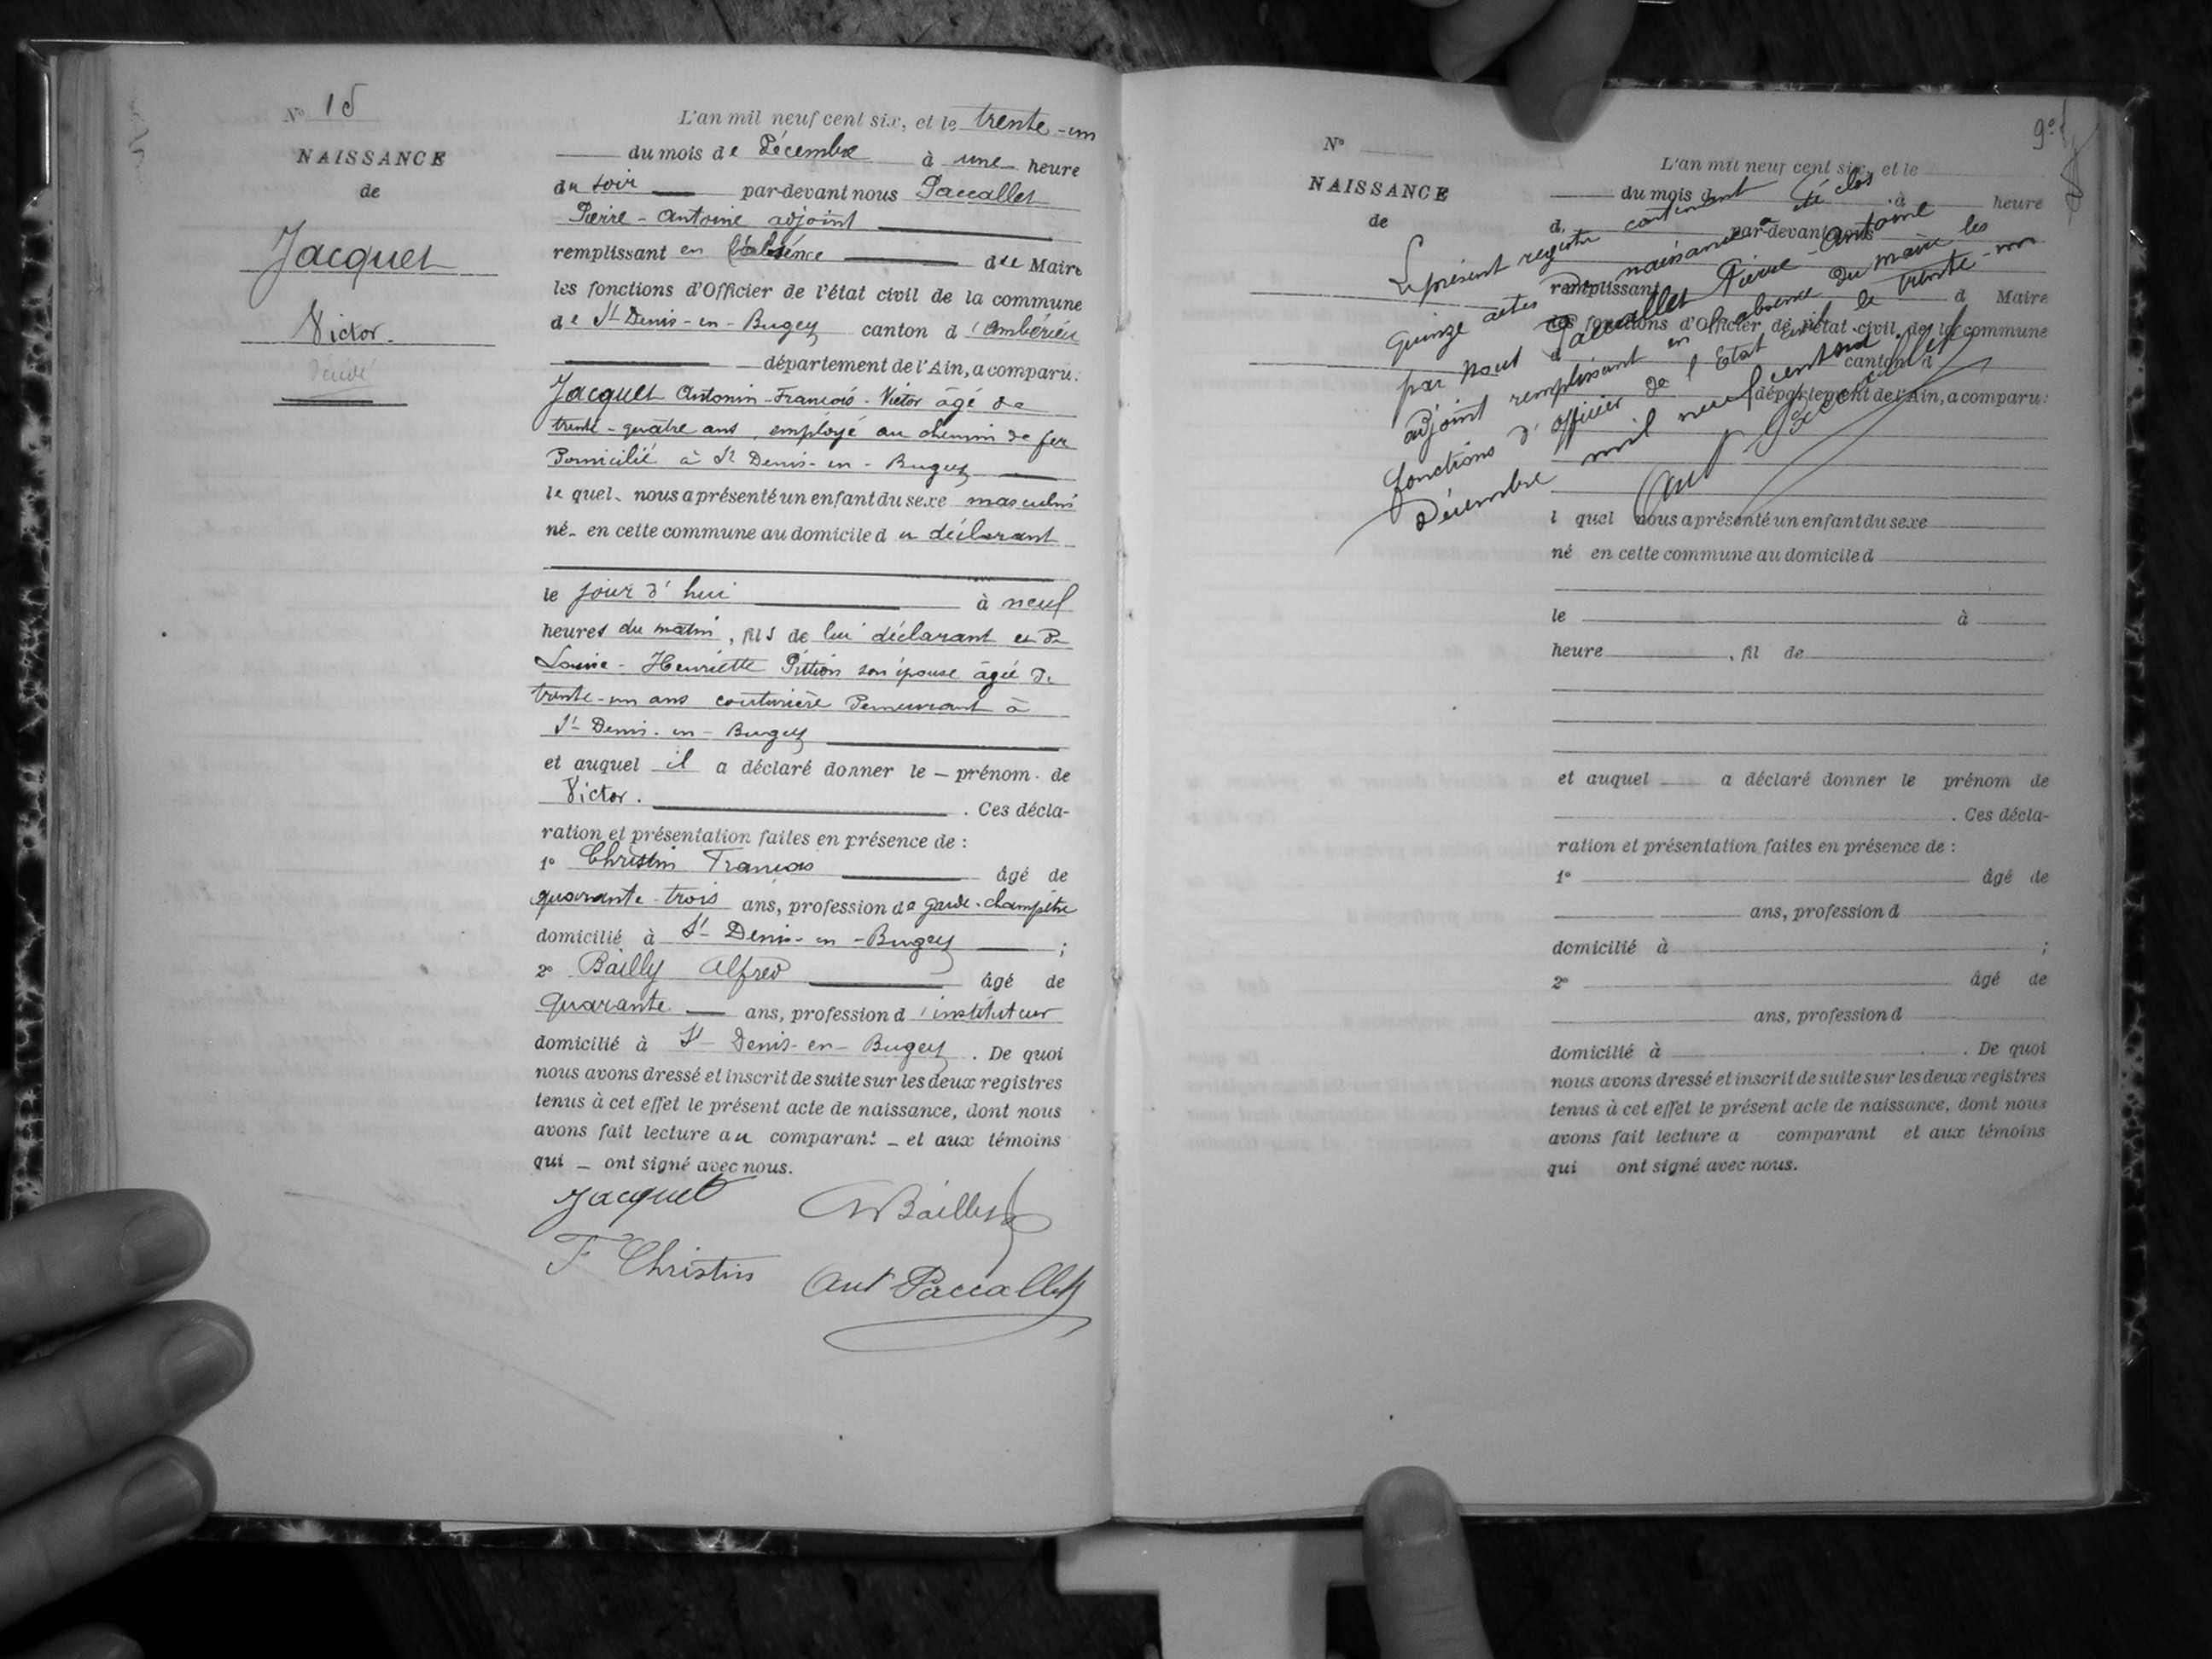 N° 15
NAISSANCE
de
Jacquet
Victor.
L'an mil neuf cent six, et le trente-un
du mois de Décembre à une heure
du soir par-devant nous Paccallet
Pierre-Antoine adjoint
remplissant en l'absence du Maire
les fonctions d'Officier de l'état civil de la commune
de St Denis-en-Bugey canton d'Ambérieu
département de l'Ain, a comparu:
Jacquet Antonin-François-Victor âgé de
trente-quatre ans, employé au chemin de fer
Domicilié à St Denis-en-Bugey
lequel nous a présenté un enfant du sexe masculin
né en cette commune au domicile du déclarant
le jour d'hui à neuf
heures du matin, fils de lui déclarant et de
Louise-Henriette Pittion son épouse âgée de
trente-un ans couturière demeurant à
St Denis-en-Bugey
et auquel il a déclaré donner le prénom de
Victor. . Ces décla-
ration et présentation faites en présence de :
1° Christin François âgé de
quarante-trois ans, profession de garde-champêtre
domicilié à St Denis-en-Bugey ;
2° Bailly Alfred âgé de
quarante ans, profession d'instituteur
domicilié à St Denis-en-Bugey . De quoi
nous avons dressé et inscrit de suite sur les deux registres
tenus à cet effet le présent acte de naissance, dont nous
avons fait lecture au comparant et aux témoins
qui ont signé avec nous.
Jacquet
Bailly
F Christin
Ant Paccallet
N°
NAISSANCE
de
L'an mil neuf cent six, et le
du mois d à heure
d par-devant nous
remplissant d Maire
les fonctions d'Officier de l'état civil de la commune
d canton d
département de l'Ain, a comparu:
Le présent registre contenant
quinze actes de naissance a été clos
par nous Paccallet Pierre-Antoine
adjoint remplissant en l'absence du maire les
fonctions d'officier de l'Etat civil le trente-un
Décembre mil neuf cent six.
Ant Paccallet
l quel nous a présenté un enfant du sexe
né en cette commune au domicile d
le à
heure , fil de
et auquel a déclaré donner le prénom de
. Ces décla-
ration et présentation faites en présence de :
1° âgé de
ans, profession d
domicilié à ;
2° âgé de
ans, profession d
domicilié à . De quoi
nous avons dressé et inscrit de suite sur les deux registres
tenus à cet effet le présent acte de naissance, dont nous
avons fait lecture a comparant et aux témoins
qui ont signé avec nous.